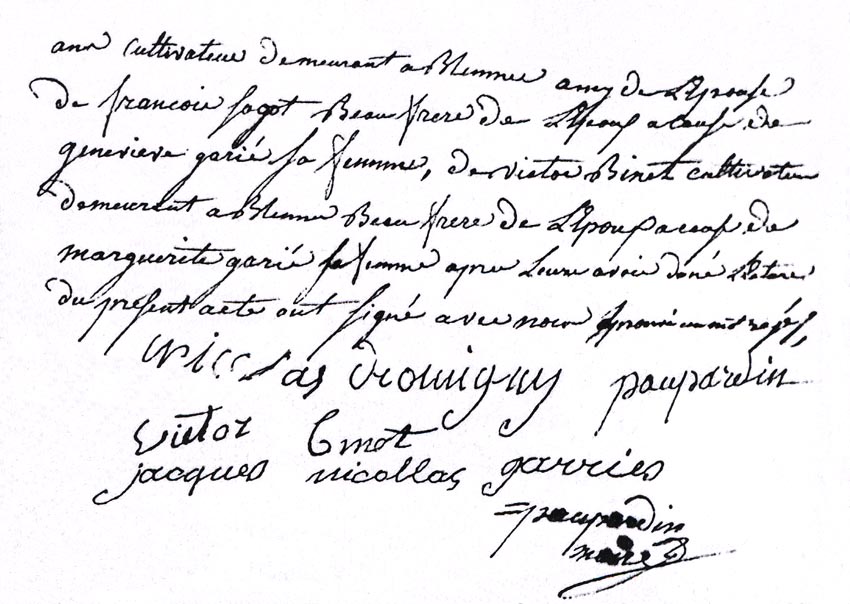 ans cultivateur demeurant a Blennes amy de Lepouse
de francois sagot Beau frere de Lepoux a cause de
genevieve garié sa femme, de victor Binet cultivateur
demeurant a Blenne Beau frere de Lepoux a cause de
marguerite garié sa femme apres Leure avoir doné Lecture
du present acte ont signé avec nous
Nicolas Drouigny poupardin
victor binet
jacques nicollas garriés
poupardin
maire